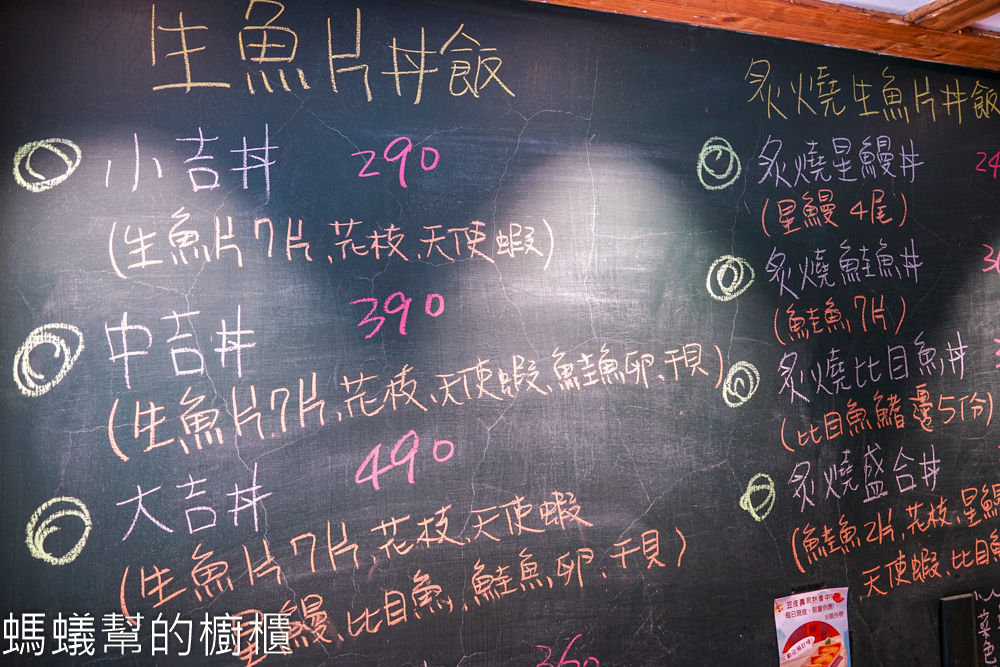 生魚片丼飯
小吉丼 290
(生魚片7片、花枝、天使蝦)
中吉丼 390
(生魚片7片、花枝、天使蝦、鮭魚卵、干貝)
大吉丼 490
(生魚片7片、花枝、天使蝦
星鰻、比目魚、鮭魚卵、干貝)
360
炙燒生魚片丼飯
炙燒星鰻丼
(星鰻4尾)
炙燒鮭魚丼
(鮭魚7片)
炙燒比目魚丼
(比目魚鰭邊5份)
炙燒盛合丼
(鮭魚2片、花枝、星鰻
天使蝦、比目魚
螞蟻幫的櫥櫃